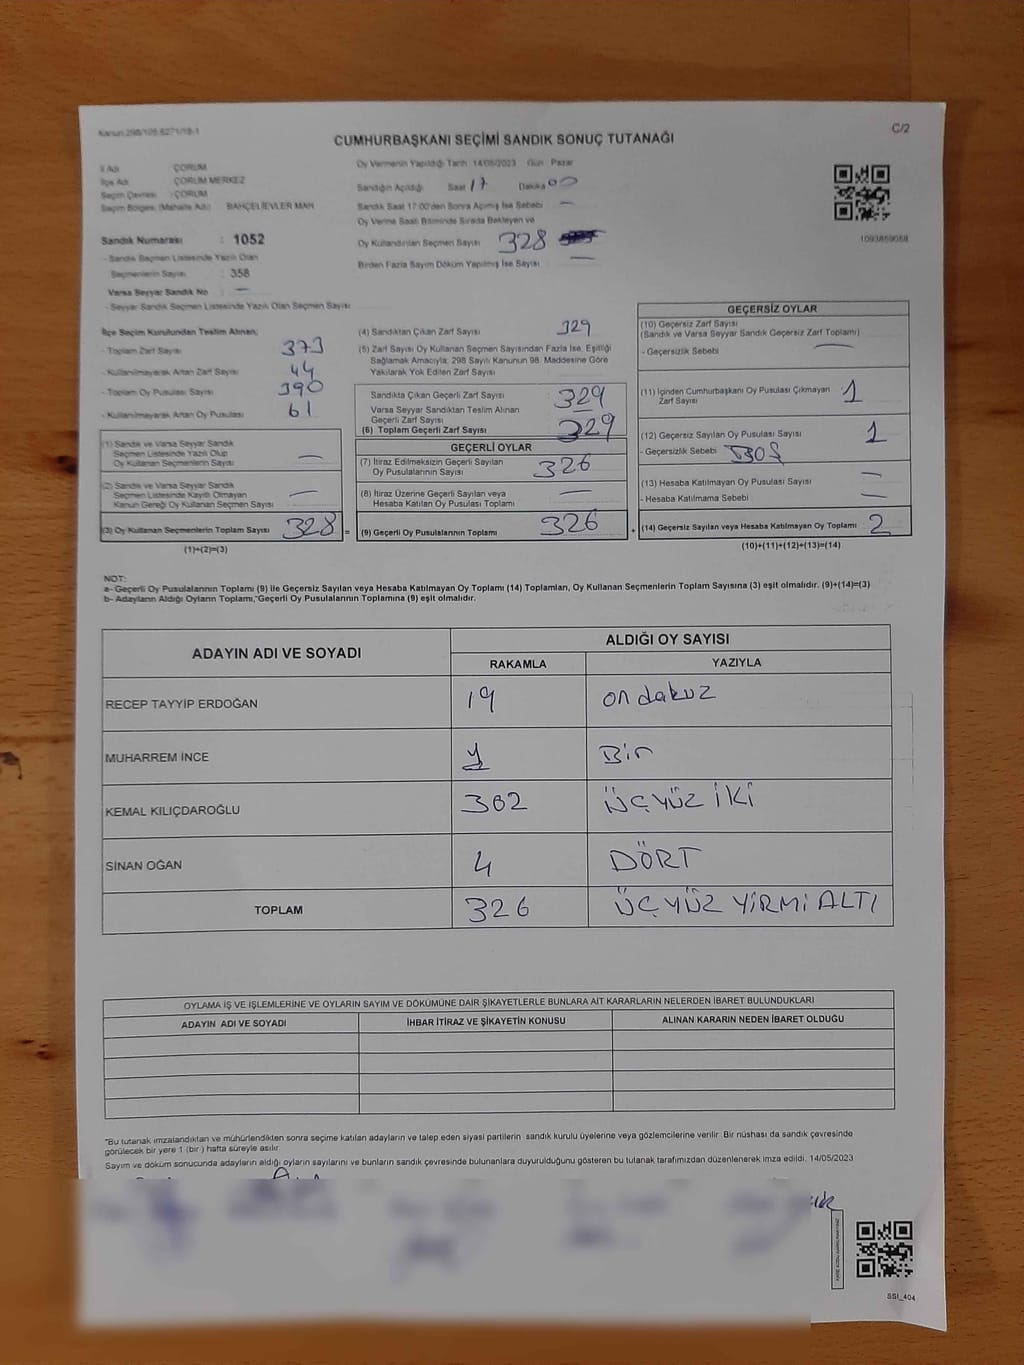 Kanun:298/105 6271/18-1
C/2
CUMHURBAŞKANI SEÇİMİ SANDIK SONUÇ TUTANAĞI
İl Adı : ÇORUM
İlçe Adı : ÇORUM MERKEZ
Seçim Çevresi : ÇORUM
Seçim Bölgesi (Mahalle Adı) : BAHÇELİEVLER MAH.
Sandık Numarası : 1052
- Sandık Seçmen Listesinde Yazılı Olan
Seçmenlerin Sayısı : 358
Varsa Seyyar Sandık No : —
- Seyyar Sandık Seçmen Listesinde Yazılı Olan Seçmen Sayısı
Oy Vermenin Yapıldığı Tarih 14/05/2023 Gün Pazar
Sandığın Açıldığı Saat 17 Dakika 00
Sandık Saat 17:00'den Sonra Açılmış İse Sebebi —
Oy Verme Saati Bitiminde Sırada Bekleyen ve
Oy Kullandırılan Seçmen Sayısı 328
Birden Fazla Sayım Döküm Yapılmış İse Sayısı —
1093859058
İlçe Seçim Kurulundan Teslim Alınan;
- Toplam Zarf Sayısı 373
- Kullanılmayarak Artan Zarf Sayısı 44
- Toplam Oy Pusulası Sayısı 390
- Kullanılmayarak Artan Oy Pusulası 61
(1) Sandık ve Varsa Seyyar Sandık
Seçmen Listesinde Yazılı Olup
Oy Kullanan Seçmenlerin Sayısı —
(2) Sandık ve Varsa Seyyar Sandık
Seçmen Listesinde Kayıtlı Olmayan
Kanun Gereği Oy Kullanan Seçmen Sayısı —
(3) Oy Kullanan Seçmenlerin Toplam Sayısı 328 =
(1)+(2)=(3)
(4) Sandıktan Çıkan Zarf Sayısı 329
(5) Zarf Sayısı Oy Kullanan Seçmen Sayısından Fazla İse, Eşitliği
Sağlamak Amacıyla, 298 Sayılı Kanunun 98. Maddesine Göre
Yakılarak Yok Edilen Zarf Sayısı
Sandıkta Çıkan Geçerli Zarf Sayısı : 329
Varsa Seyyar Sandıktan Teslim Alınan
Geçerli Zarf Sayısı : —
(6) Toplam Geçerli Zarf Sayısı : 329
GEÇERLİ OYLAR
(7) İtiraz Edilmeksizin Geçerli Sayılan
Oy Pusulalarının Sayısı 326
(8) İtiraz Üzerine Geçerli Sayılan veya
Hesaba Katılan Oy Pusulası Toplamı —
(9) Geçerli Oy Pusulalarının Toplamı 326 +
GEÇERSİZ OYLAR
(10) Geçersiz Zarf Sayısı
(Sandık ve Varsa Seyyar Sandık Geçersiz Zarf Toplamı)
- Geçersizlik Sebebi —
(11) İçinden Cumhurbaşkanı Oy Pusulası Çıkmayan
Zarf Sayısı 1
(12) Geçersiz Sayılan Oy Pusulası Sayısı 1
- Geçersizlik Sebebi BOŞ
(13) Hesaba Katılmayan Oy Pusulası Sayısı —
- Hesaba Katılmama Sebebi —
(14) Geçersiz Sayılan veya Hesaba Katılmayan Oy Toplamı 2
(10)+(11)+(12)+(13)=(14)
NOT:
a- Geçerli Oy Pusulalarının Toplamı (9) ile Geçersiz Sayılan veya Hesaba Katılmayan Oy Toplamı (14) Toplamları, Oy Kullanan Seçmenlerin Toplam Sayısına (3) eşit olmalıdır. (9)+(14)=(3)
b- Adayların Aldığı Oyların Toplamı, Geçerli Oy Pusulalarının Toplamına (9) eşit olmalıdır.
ADAYIN ADI VE SOYADI
ALDIĞI OY SAYISI
RAKAMLA YAZIYLA
RECEP TAYYİP ERDOĞAN 19 on dokuz
MUHARREM İNCE 1 Bir
KEMAL KILIÇDAROĞLU 302 ÜÇYÜZ İKİ
SİNAN OĞAN 4 DÖRT
TOPLAM 326 ÜÇYÜZ YİRMİ ALTI
OYLAMA İŞ VE İŞLEMLERİNE VE OYLARIN SAYIM VE DÖKÜMÜNE DAİR ŞİKAYETLERLE BUNLARA AİT KARARLARIN NELERDEN İBARET BULUNDUKLARI
ADAYIN ADI VE SOYADI İHBAR İTİRAZ VE ŞİKAYETİN KONUSU ALINAN KARARIN NEDEN İBARET OLDUĞU
*Bu tutanak imzalandıktan ve mühürlendikten sonra seçime katılan adayların ve talep eden siyasi partilerin sandık kurulu üyelerine veya gözlemcilerine verilir. Bir nüshası da sandık çevresinde
görülecek bir yere 1 (bir) hafta süreyle asılır.
Sayım ve döküm sonucunda adayların aldığı oyların sayılarını ve bunların sandık çevresinde bulunanlara duyurulduğunu gösteren bu tutanak tarafımızdan düzenlenerek imza edildi. 14/05/2023
SSİ_404